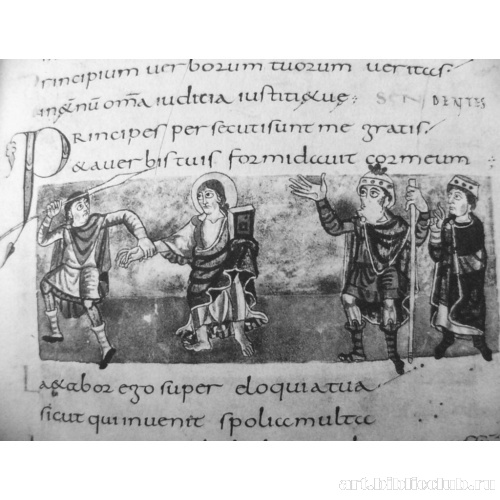 Principium verborum tuorum veritas·
in&ernū om̄a iudicia iustitiȩtuȩ·
DENTES
Principes persecuti sunt me gratis·
& averbis tuis formidavit cor meum
Laetabor ego super eloquia tua
sicut qui invenit spolia multa
art.biblioclub.ru